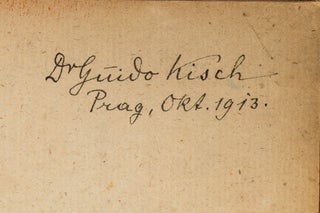 Dr Guido Kisch
Prag, Okt. 1913.